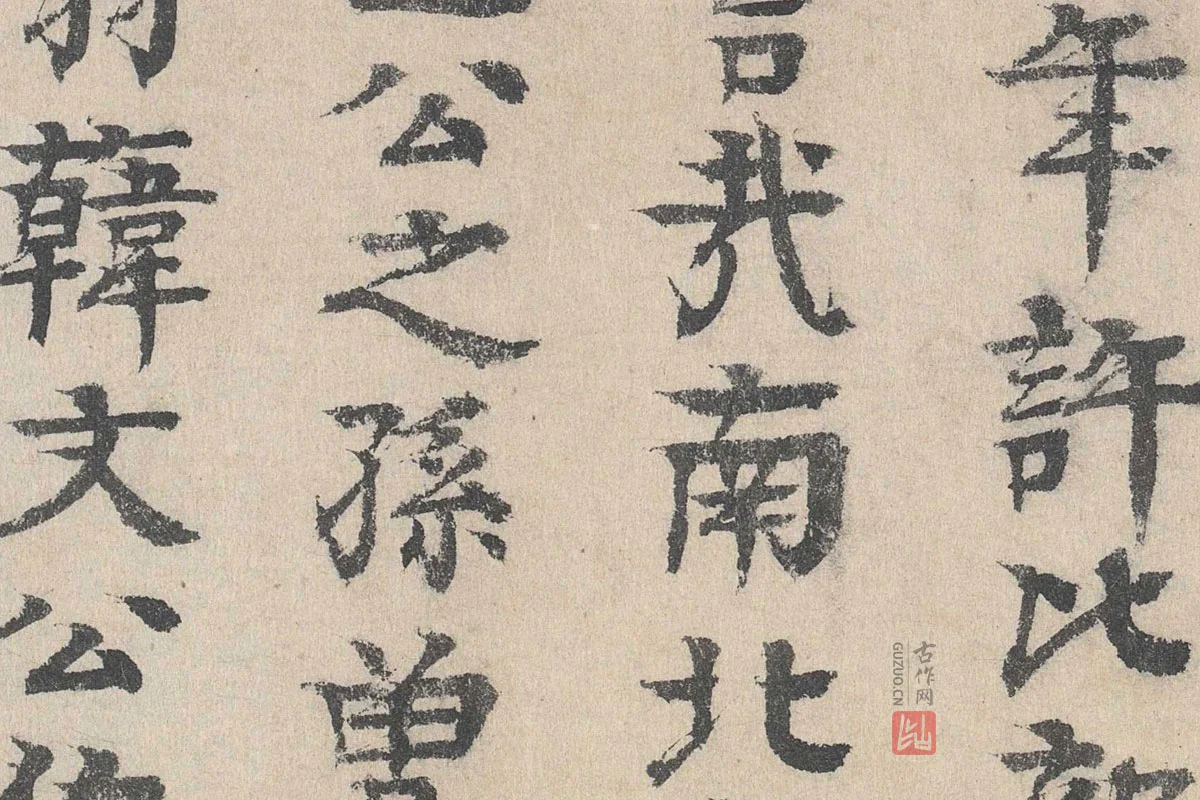 年許比
我南北
公之孫曽
韓文公
古作网
GUZUO.CN